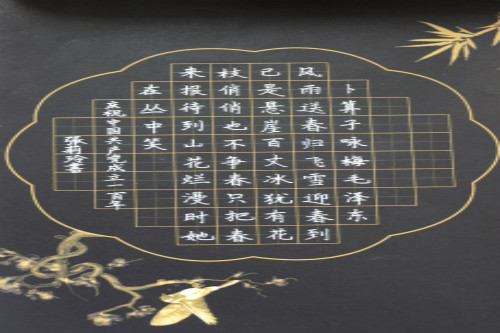 卜算子咏梅毛泽东
风雨送春归飞雪迎春到
已是悬崖百丈冰犹有花
枝俏俏也不争春只把春
来报待到山花烂漫时她
在丛中笑
庆祝中国共产党成立一百年
张莉玲书